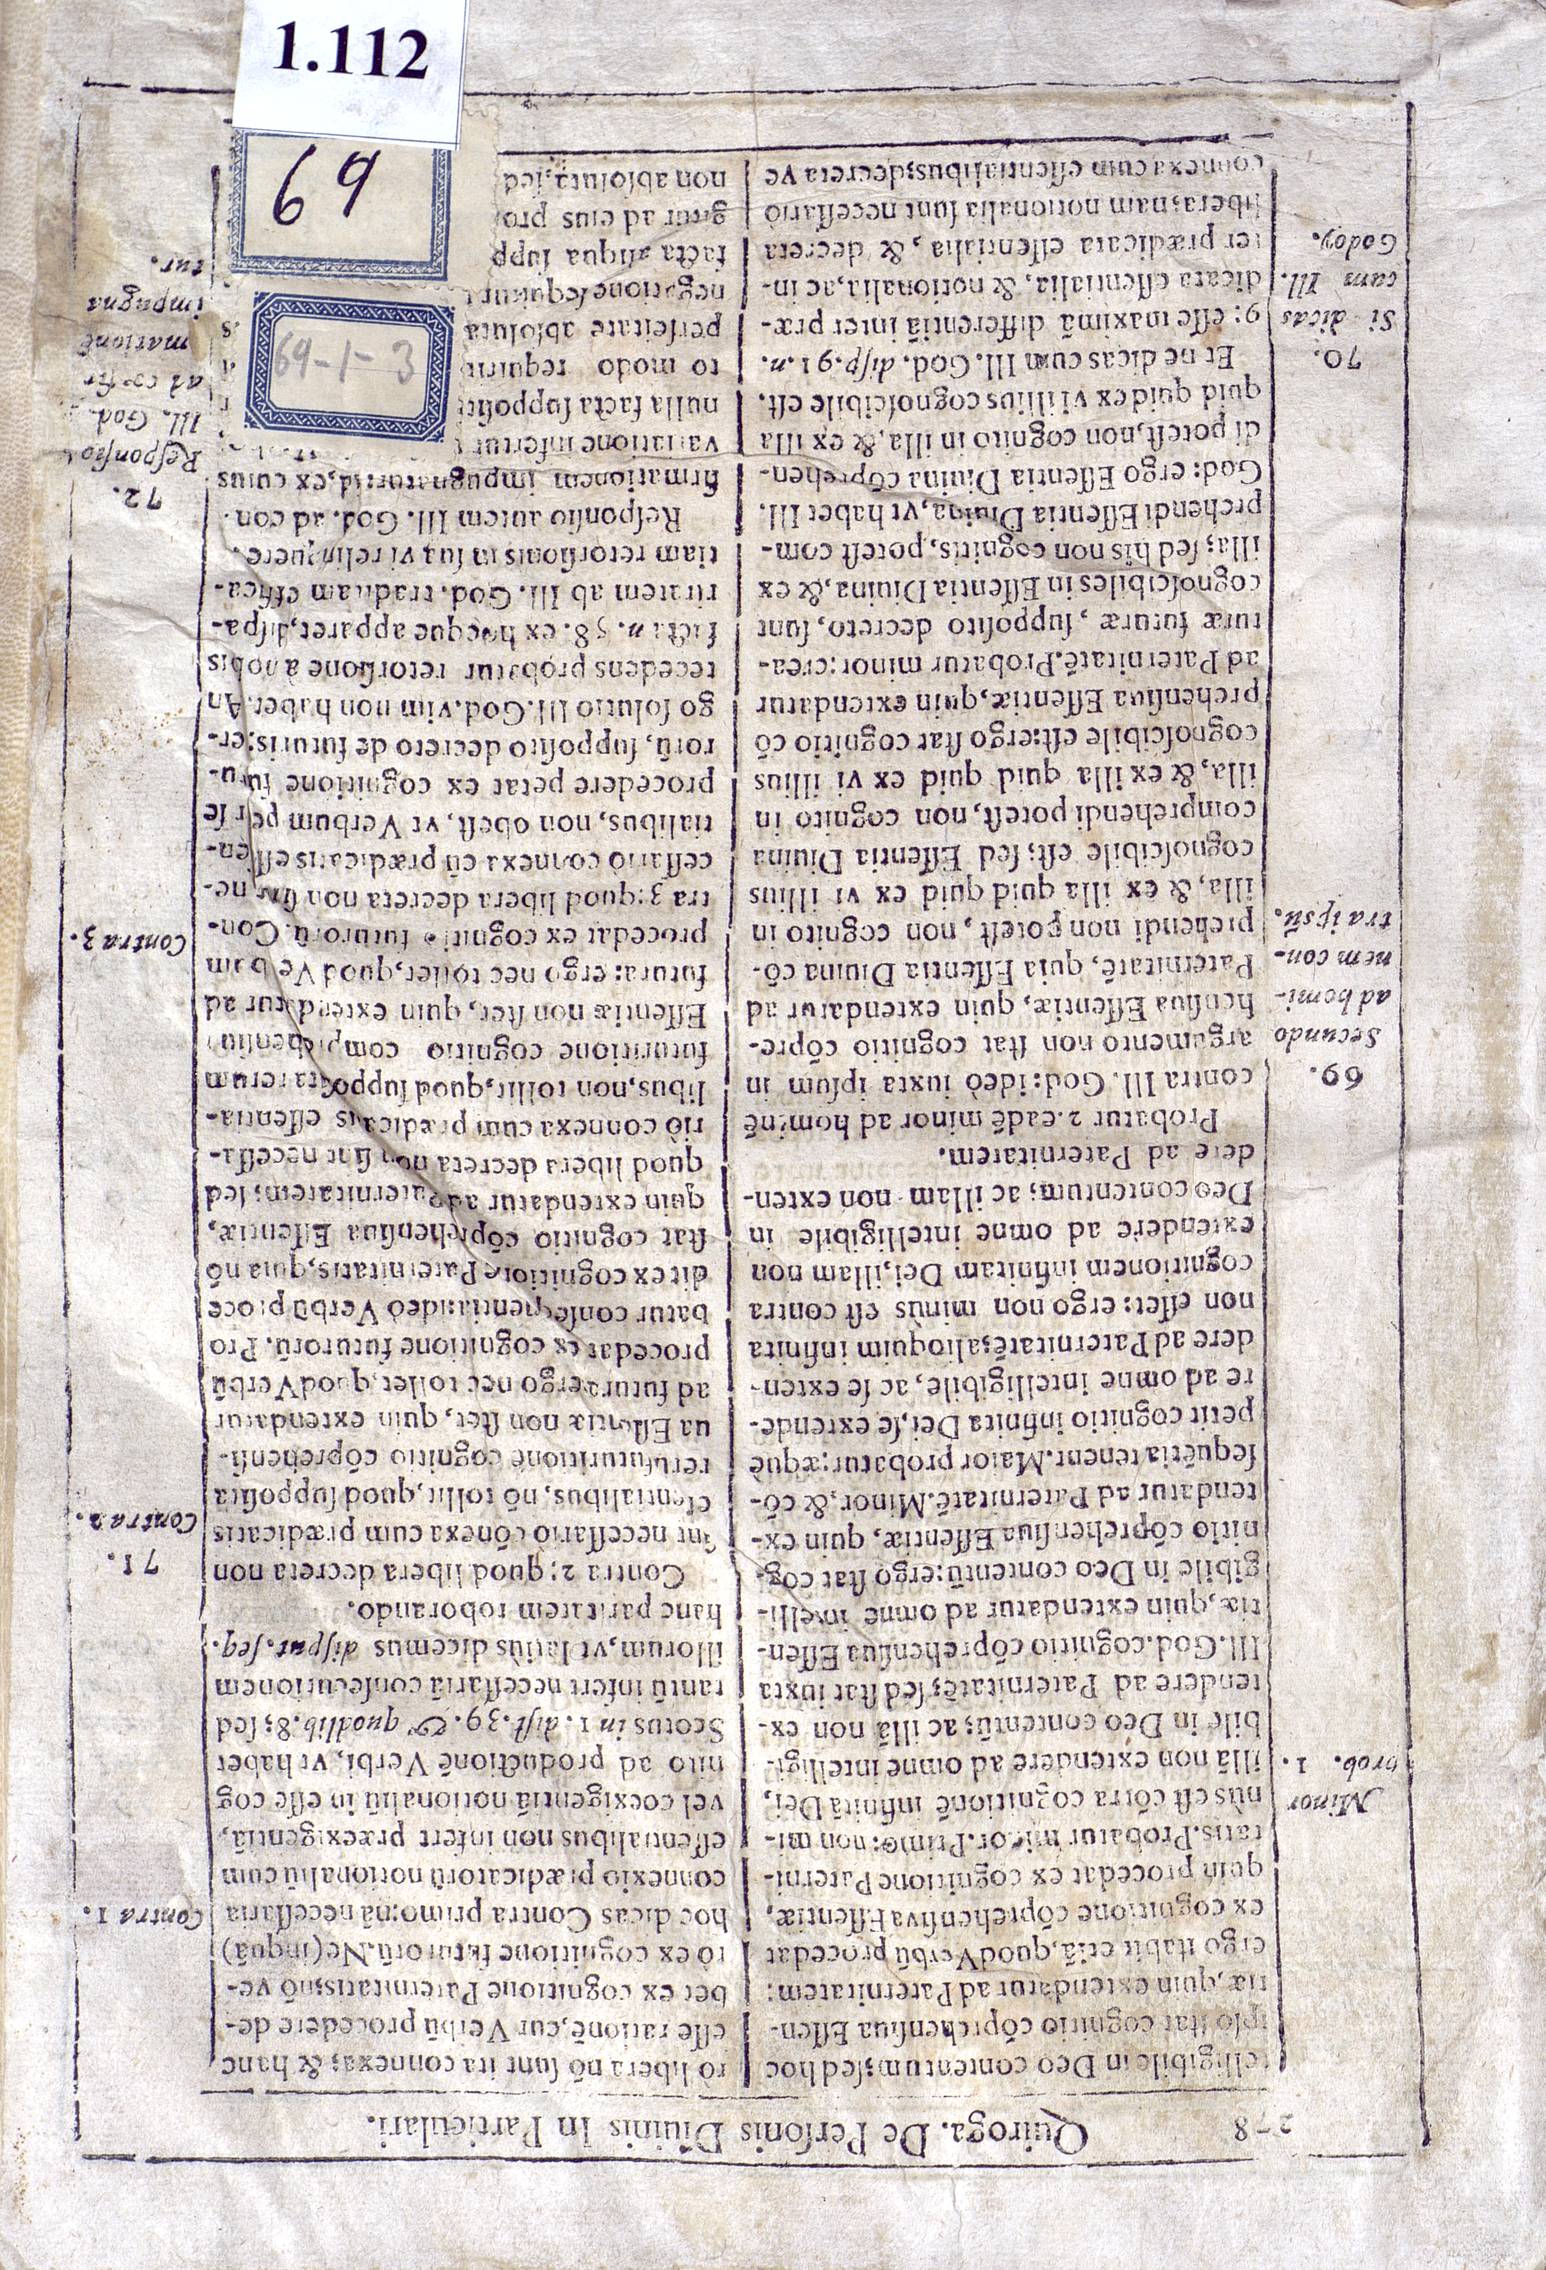 1.112
69
69-1-3
278 Quiroga. De Perſonis Diuinis In Particulari.
telligibile in Deo contentum; ſed hoc
ipſo ſtat cognitio cõprehenſiua Eſſen-
tiæ, quin extendatur ad Paternitatem:
ergo ſtabit etiã, quod Verbũ procedat
ex cognitione cõprehenſiva Eſſentiæ,
quin procedat ex cognitione Paterni-
tatis. Probatur minor. Primò: non mi-
Minor
nùs eſt cõtra cognitionẽ infinitã Dei,
prob. 1.
illã non extendere ad omne intelligi-
bile in Deo contentũ; ac illã non ex-
tendere ad Paternitatẽ; ſed ſtat iuxta
Ill. God. cognitio cõprehenſiua Eſſen-
tiæ, quin extendatur ad omne intelli-
gibile in Deo contentũ: ergo ſtat cog-
nitio cõprehenſiua Eſſentiæ, quin ex-
tendatur ad Paternitatẽ. Minor, & cõ-
ſequẽtia tenent. Maior probatur: æquè
petit cognitio infinita Dei, ſe extende-
re ad omne intelligibile, ac ſe exten-
dere ad Paternitatẽ; alioquim infinita
non eſſet: ergo non minùs eſt contra
cognitionem infinitam Dei, illam non
extendere ad omne intelligibile in
Deo contentum; ac illam non exten-
dere ad Paternitatem.
Probatur 2. eadẽ minor ad hominẽ
69.
contra Ill. God: ideò iuxta ipſum in
Secundo
argumento non ſtat cognitio cõpre-
ad homi-
henſiua Eſſentiæ, quin extendatur ad
nem con-
Paternitatẽ, quia Eſſentia Diuina cõ-
tra ipsũ.
prehendi non poteſt, non cognito in
illa, & ex illa quid quid ex vi illius
cognoſcibile eſt; ſed Eſſentia Diuina
comprehendi poteſt, non cognito in
illa, & ex illa quid quid ex vi illius
cognoſcibile eſt: ergo ſtat cognitio cõ
prehenſiua Eſſentiæ, quin extendatur
ad Paternitatẽ. Probatur minor: crea-
turæ futuræ, ſuppoſito decreto, ſunt
cognoſcibiles in Eſſentia Diuina, & ex
illa; ſed his non cognitis, poteſt com-
prehendi Eſſentia Diuina, vt habet Ill.
God: ergo Eſſentia Diuina cõprehen-
di poteſt, non cognito in illa, & ex illa
quid quid ex vi illius cognoſcibile eſt.
70.
Et ne dicas cum Ill. God. diſp. 91 n.
Si dicas
9: eſſe maximã differentiã inter præ-
cum Ill.
dicata eſſentialia, & notionalia, ac in-
Godoy.
ter prædicata eſſentialia, & decreta
libera; nam notionalia ſunt neceſſariò
connexa cum eſſentialibus; decreta ve
rò libera nõ ſunt ita connexa; & hanc
eſſe rationẽ, cur Verbũ procedere de-
bet ex cognitione Paternitatis; nõ ve-
rò ex cognitione futurorũ. Ne (inquã)
hoc dicas Contra primo: nã neceſſaria
Contra 1.
connexio prædicatorũ notionaliũ cum
eſſentialibus non infert præexigentiã,
vel coexigentiã notionaliũ in eſſe cog
nito ad productionẽ Verbi, vt habet
Scotus in 1. diſt. 39. & quodlib. 8; ſed
tantũ infert neceſſariã conſecutionem
illorum, vt latiùs dicemus diſput. ſeq.
hanc paritatem roborando.
71.
Contra 2: quod libera decreta non
Contra 2.
ſint neceſſario cõnexa cum prædicatis
eſſentialibus, nõ tollit, quod ſuppoſita
rerũ futuritione cognitio cõprehenſi-
ua Eſſentiæ non ſtet, quin extendatur
ad futura: ergo nec tollet, quod Verbũ
procedat ex cognitione futurorũ. Pro
batur conſequentia: ideò Verbũ proce
dit ex cognitione Paternitatis, quia nõ
ſtat cognitio cõprehenſiua Eſſentiæ,
quin extendatur ad Paternitatem; ſed
quod libera decreta non ſint neceſſa-
riò connexa cum prædicatis eſſentia-
libus, non tollit, quod ſuppoſita rerum
futuritione cognitio comprehenſiua
Eſſentiæ non ſtet, quin extendatur ad
futura: ergo nec tollet, quod Verbum
procedat ex cognitione futurorũ. Con-
Contra 3.
tra 3: quod libera decreta non ſint ne-
ceſſariò connexa cũ prædicatis eſſen-
tialibus, non obeſt, vt Verbum per ſe
procedere petat ex cognitione futu-
rorũ, ſuppoſito decreto de futuris: er-
go ſolutio Ill. God. vim non habet. An
tecedens probatur retorſione à nobis
facta n. 58. ex hocque apparet, diſpa-
ritatem ab Ill. God. traditam effica-
tiam retorſionis in ſua vi relinquere.
72.
Reſponſio autem Ill. God. ad con-
Reſponſio
firmationem impugnatur: id, ex cuius
Ill. God.
variatione infertur
ad cõfir
nulla facta ſuppoſit
mationẽ
to modo requirit
impugna
perſeitate abſoluta
tur.
negatione ſequatur
facta aliqua ſupp
gitur ad eius pro
non abſoluta, ſed